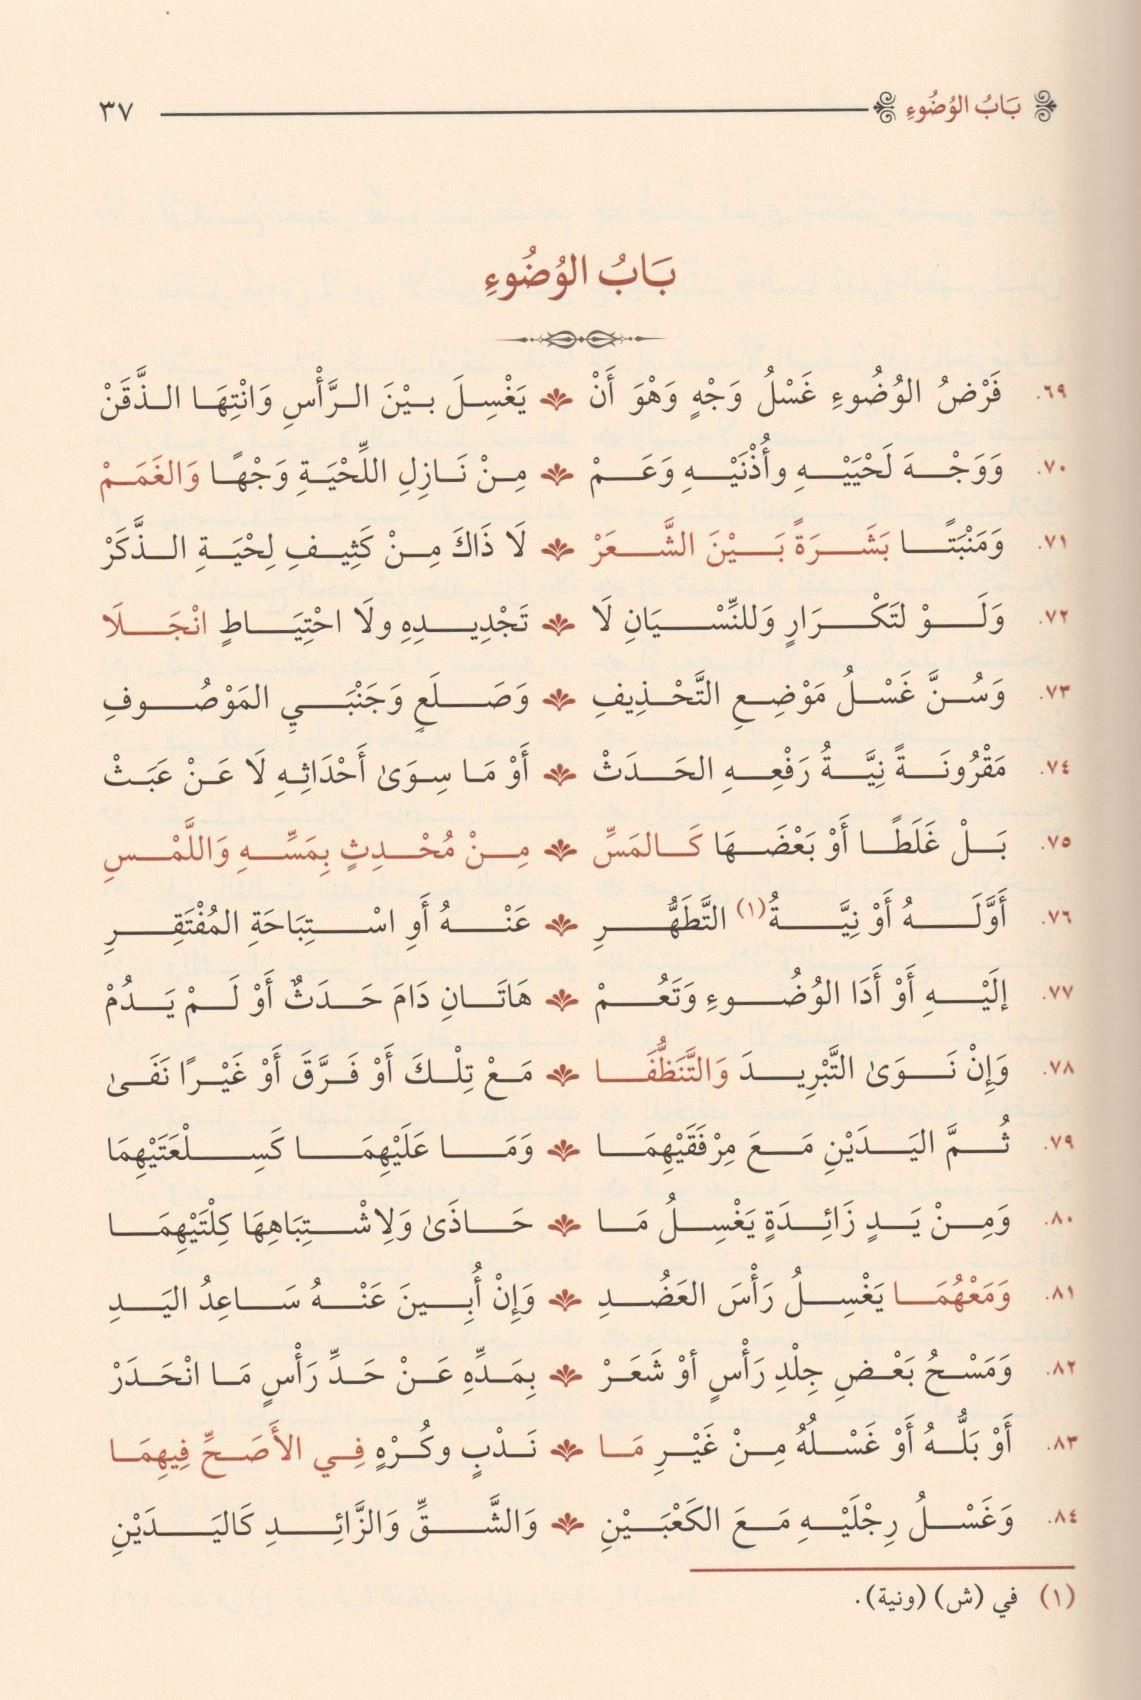 بَابُ الوُضُوءِ ٣٧
بَابُ الوُضُوءِ
٦٩. فَرْضُ الوُضُوءِ غَسْلُ وَجْهٍ وَهْوَ أَنْ يَغْسِلَ بيْنَ الرَّأْسِ وَانْتِهَا الذَّقَنْ
٧٠. وَوَجْهَ لَحْيَيْهِ وأُذْنَيْهِ وَعَمْ مِنْ نَازِلِ اللِّحْيَةِ وَجْهًا وَالغَمَمْ
٧١. وَمَنْبَتًا بَشَرَةً بَيْنَ الشَّعَرْ لَا ذَاكَ مِنْ كَثِيفِ لِحْيَةِ الذَّكَرْ
٧٢. وَلَوْ لتَكْرَارٍ وَللنِّسْيَانِ لَا تَجْدِيدِهِ ولَا احْتِيَاطٍ انْجَلَا
٧٣. وَسُنَّ غَسْلُ مَوْضِعِ التَّحْذِيفِ وَصَلَعٍ وَجَنْبَيِ المَوْصُوفِ
٧٤. مَقْرُونَةً نِيَّةُ رَفْعِهِ الحَدَثْ أَوْ مَا سِوَىٰ أَحْدَاثِهِ لَا عَنْ عَبَثْ
٧٥. بَلْ غَلَطًا أَوْ بَعْضَهَا كَالمَسِّ مِنْ مُحْدِثٍ بِمَسِّهِ وَاللَّمْسِ
٧٦. أَوَّلَهُ أَوْ نِيَّةُ(١) التَّطَهُّرِ عَنْهُ أَوِ اسْتِبَاحَةِ المُفْتَقِرِ
٧٧. إلَيْهِ أَوْ أَدَا الوُضُوءِ وَتَعُمْ هَاتَانِ دَامَ حَدَثٌ أَوْ لَمْ يَدُمْ
٧٨. وَإِنْ نَوَىٰ التَّبْرِيدَ وَالتَّنَظُّفَا مَعْ تِلْكَ أَوْ فَرَّقَ أَوْ غَيْرًا نَفَىٰ
٧٩. ثُمَّ اليَدَيْنِ مَعَ مِرْفَقَيْهِمَا وَمَا عَلَيْهِمَا كَسِلْعَتَيْهِمَا
٨٠. وَمِنْ يَدٍ زَائِدَةٍ يَغْسِلُ مَا حَاذَىٰ وَلِاشْتِبَاهِهَا كِلْتَيْهِمَا
٨١. وَمَعْهُمَا يَغْسِلُ رَأْسَ العَضُدِ وَإِنْ أُبِينَ عَنْهُ سَاعِدُ اليَدِ
٨٢. وَمَسْحُ بَعْضِ جِلْدِ رَأْسٍ أوْ شَعَرْ بِمَدِّهِ عَنْ حَدِّ رَأْسٍ مَا انْحَدَرْ
٨٣. أَوْ بَلُّهُ أَوْ غَسْلُهُ مِنْ غَيْرِ مَا نَدْبٍ وكُرْهٍ فِي الأَصَحِّ فِيهِمَا
٨٤. وَغَسْلُ رِجْلَيْهِ مَعَ الكَعْبَيْنِ وَالشَّقِّ وَالزَّائِدِ كَاليَدَيْنِ
(١) في (ش) (ونية).